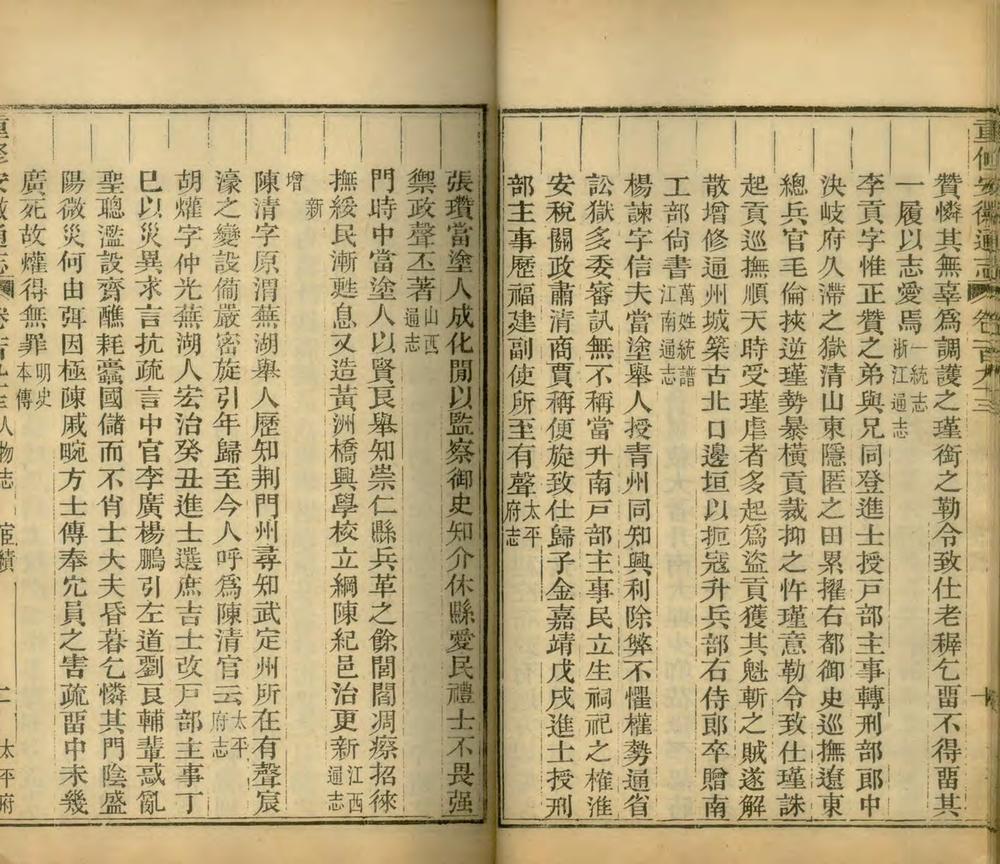 重修安徽通志 卷一百九十三
贊憐其無辜爲調護之瑾銜之勒令致仕老穉乞畱不得畱其
一履以志愛焉一統志浙江通志
李貢字惟正贊之弟與兄同登進士授戸部主事轉刑部郎中
決岐府久滯之獄清山東隱匿之田累擢右都御史巡撫遼東
總兵官毛倫挾逆瑾勢暴橫貢裁抑之忤瑾意勒令致仕瑾誅
起貢巡撫順天時受瑾虐者多起爲盜貢獲其魁斬之賊遂解
散增修通州城築古北口邊垣以扼寇升兵部右侍郎卒贈南
工部尙書萬姓統譜江南通志
楊諫字信夫當塗舉人授青州同知興利除弊不懼權勢通省
訟獄多委審訊無不稱當升南戸部主事民立生祠祀之榷淮
安稅關政肅清商賈稱便旋致仕歸子金嘉靖戊戌進士授刑
部主事歷福建副使所至有聲太平府志
張瓚當塗人成化閒以監察御史知介休縣愛民禮士不畏强
禦政聲丕著山西通志
門時中當塗人以賢良舉知崇仁縣兵革之餘閭閻凋瘵招徠
撫綏民漸甦息又造黃洲橋興學校立綱陳紀邑治更新江西通志
新增
陳清字原渭蕪湖舉人歷知荆門州尋知武定州所在有聲宸
濠之變設備嚴密旋引年歸至今人呼爲陳清官云太平府志
胡爟字仲光蕪湖人宏治癸丑進士選庶吉士改戸部主事丁
巳以災異求言抗疏言中官李廣楊鵬引左道劉良輔輩惑亂
聖聰濫設齋醮耗蠹國儲而不肖士大夫昏暮乞憐其門陰盛
陽微災何由弭因極陳戚畹方士傳奉宂員之害疏畱中未幾
廣死故爟得無罪明史本傳
重修安徽通志 卷一百九十三人物志 宦績 二 太平府